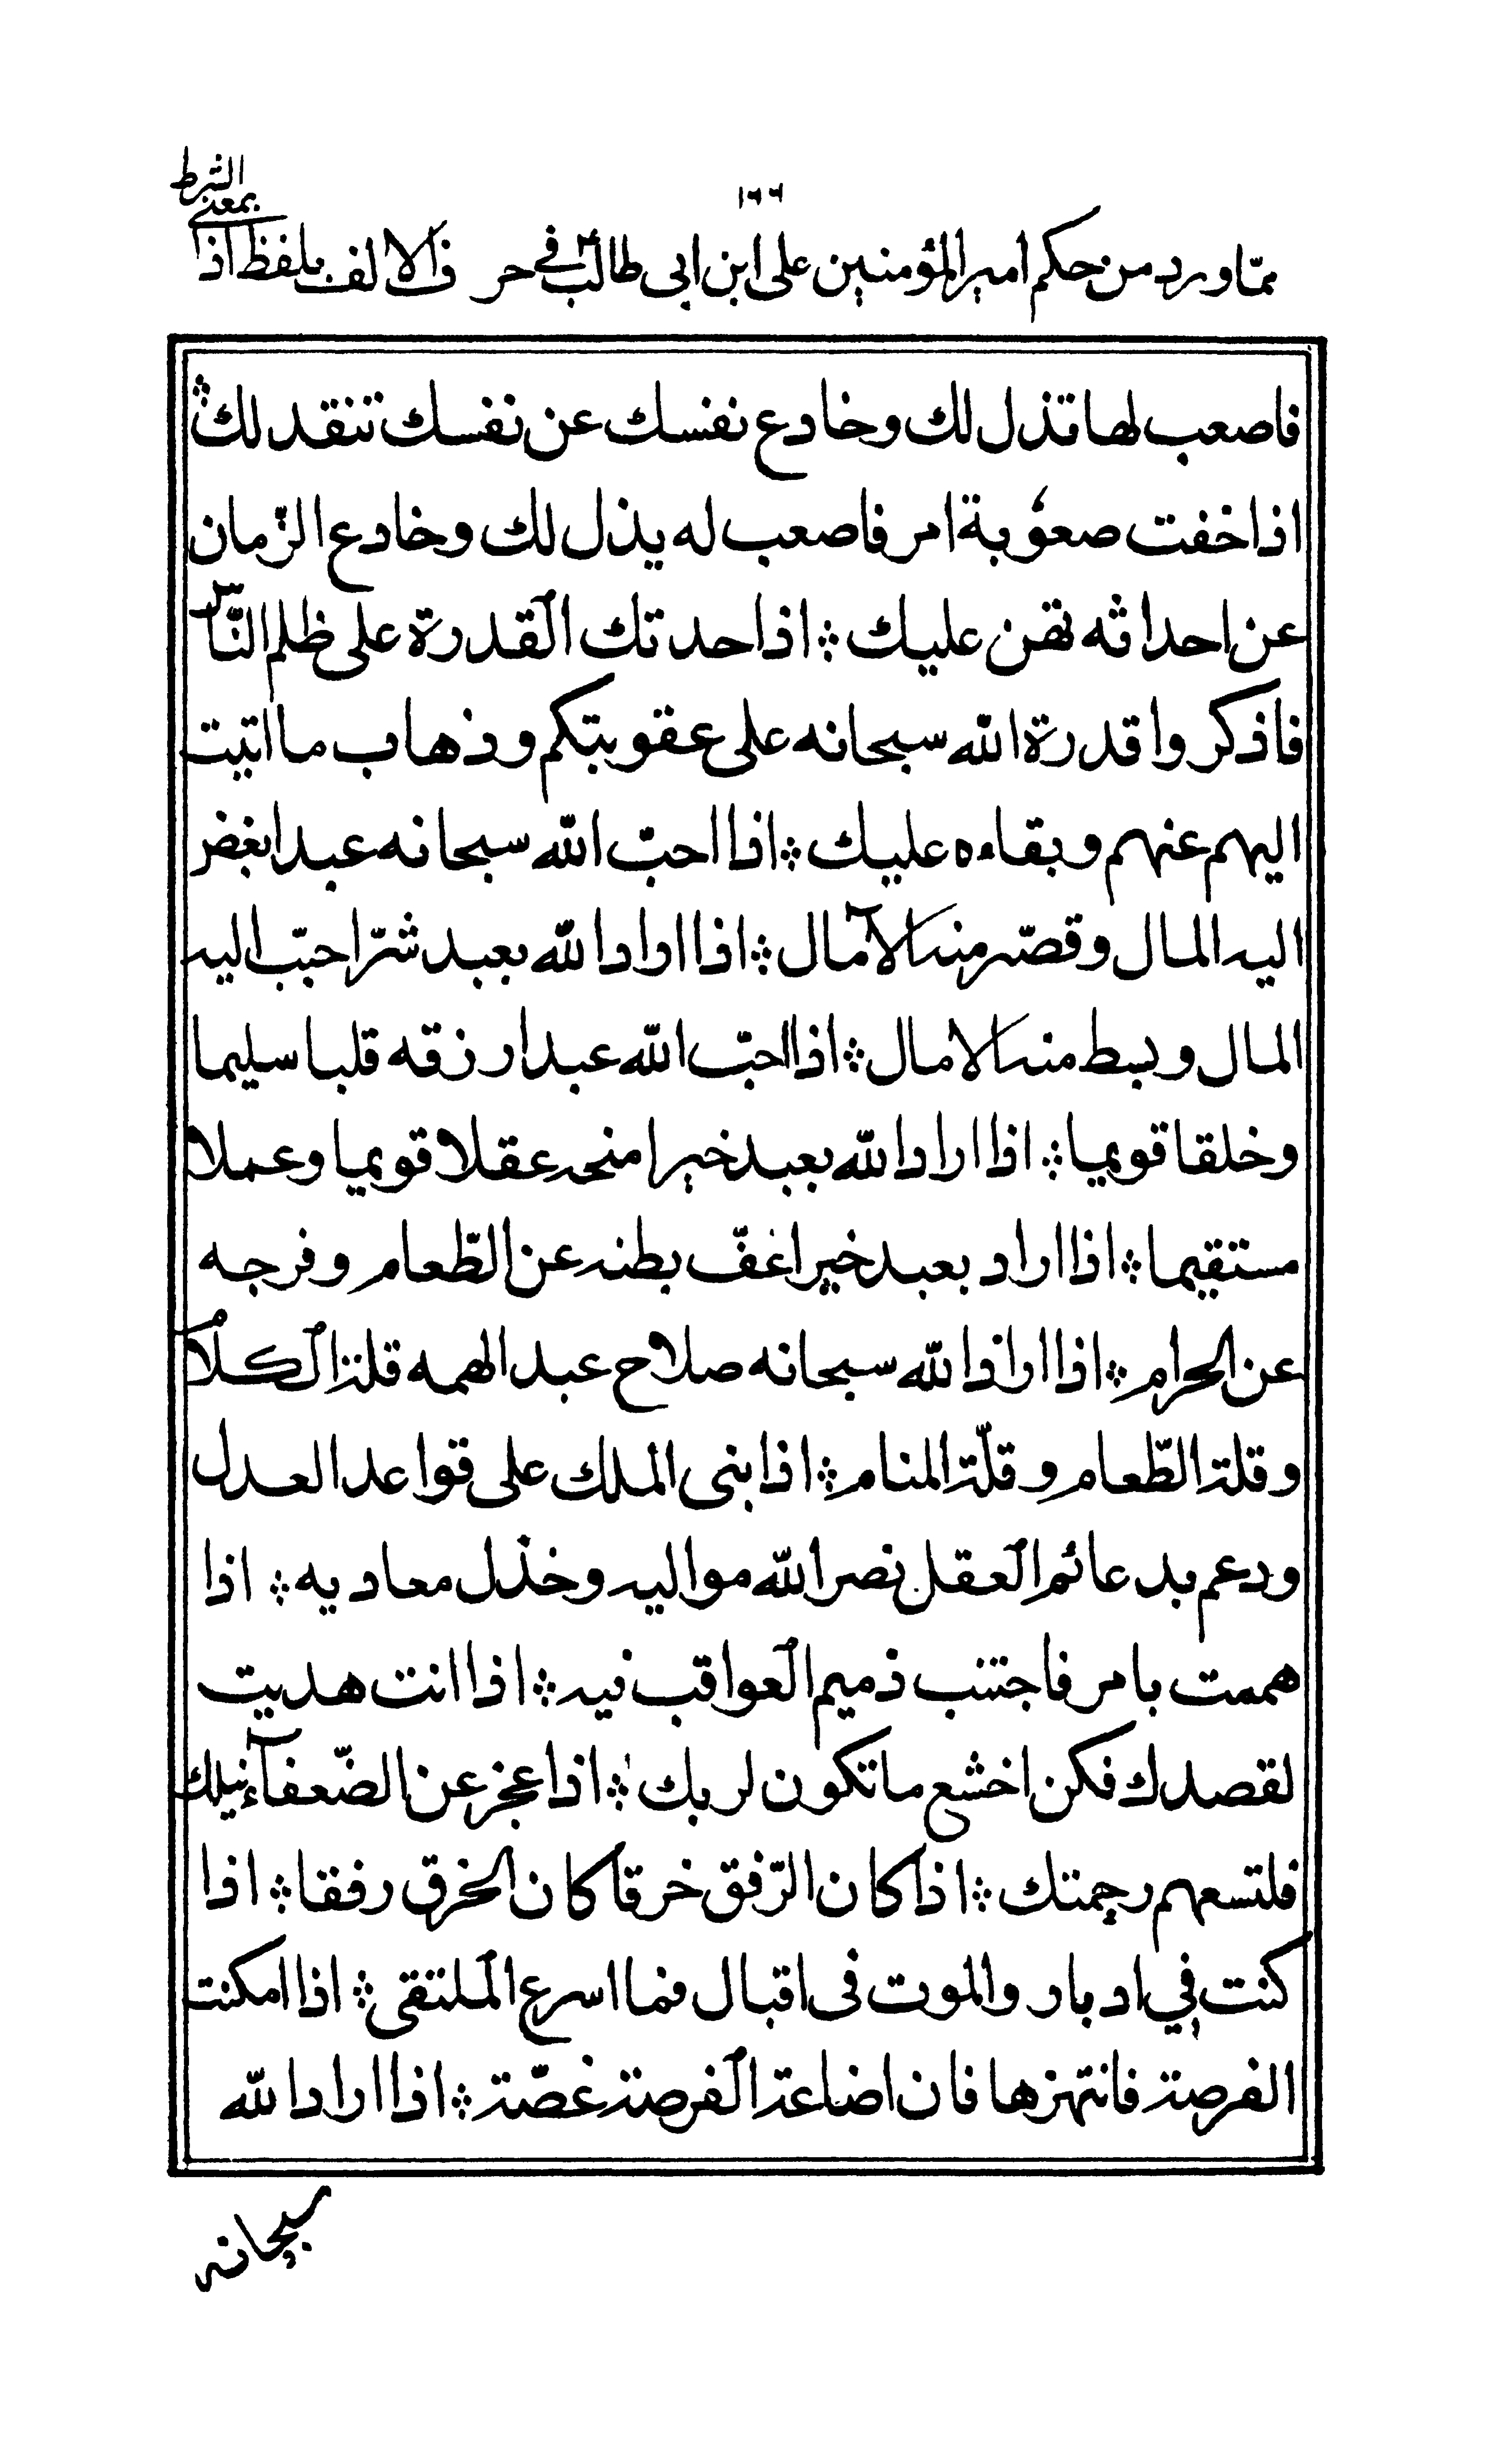 ١٦٦
ممّا ورد من حكم امير المؤمنين على ابن ابى طالب في حرف الالف بلفظ اذا
بمعنى
الشرط
فاصعب لها تذل لك وخادع نفسك عن نفسك تنقد لك
اذا خفت صعوبة امر فاصعب له يذل لك وخادع الزّمان
عن احداثه تهن عليك ؞ اذا حدتك القدرة على ظلم النّاس
فاذكروا قدرة الله سبحانه على عقوبتكم وذهاب ما اتيت
اليهم عنهم وبقاءه عليك ؞ اذا احبّ الله سبحانه عبدا بغض
اليه المال وقصّر منه الآمال ؞ اذا اراد الله بعبد شرّا حبّب اليه
المال وبسط منه الامال ؞ اذا احبّ الله عبدا رزقه قلبا سليما
وخلقا قويما ؞ اذا اراد الله بعبد خيرا منحه عقلا قويما وعملا
مستقيما ؞ اذا اراد بعبد خيرا عفّ بطنه عن الطّعام وفرجه
عن الحرام ؞ اذا اراد الله سبحانه صلاح عبد الهمه قلة الكلام
وقلة الطّعام وقلّة المنام ؞ اذا بنى الملك على قواعد العدل
ودعم بدعائم العقل نصر الله مواليه وخذل معاديه ؞ اذا
هممت بامر فاجتنب ذميم العواقب فيه ؞ اذا انت هديت
لقصدك فكن اخشع ما تكون لربك ؞ اذا عجز عن الضّعفآء نيلك
فلتسعهم رحمتك ؞ اذا كان الرّفق خرقا كان الخرق رفقا ؞ اذا
كنت في ادبار والموت فى اقبال فما اسرع الملتقى ؞ اذا امكنت
الفرصة فانتهزها فان اضاعة الفرصة غصّة ؞ اذا اراد الله
سبحانه